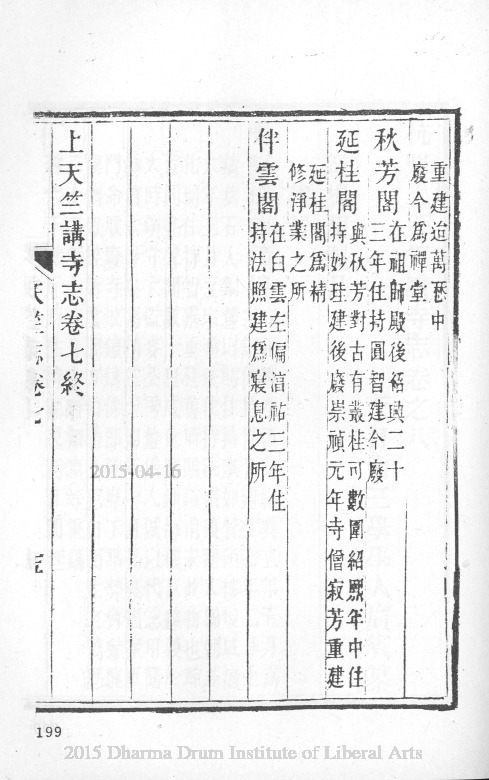 重建迨萬曆中
廢今爲禪堂
秋芳閣
在祖師殿後紹興二十
三年住持圓智建今廢
延桂閣
與秋芳對古有叢桂可數圍紹熙年中住
持妙珪建後廢崇禎元年寺僧寂芳重建
延桂閣爲精
修淨業之所
伴雲閣
在白雲左偏淳祐三年住
持法照建爲寢息之所
上天竺講寺志卷七終
天竺志卷七
199
2015-04-16
2015 Dharma Drum Institute of Liberal Arts